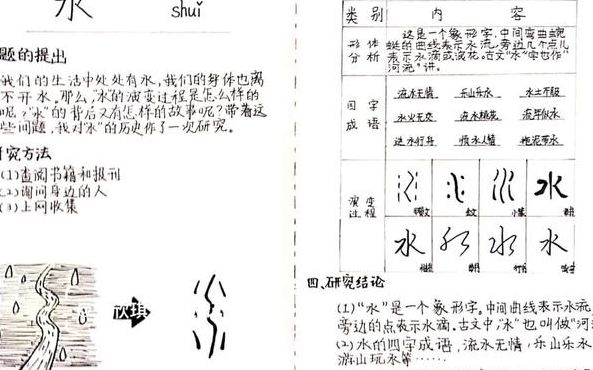 水
shuǐ
题的提出
我们的生活中处处有水，我们的身体也离
不开水。那么，“水”的演变过程是怎么样的
呢？“水”的背后又有怎样的故事呢？带着这
些问题，我对“水”的历史作了一次研究。
研究方法
(1)查阅书籍和报刊
(2)询问身边的人
(3)上网收集
欣琪
类别 内容
形体分析
这是一个象形字，中间弯曲蜿
蜒的曲线表示水流，旁边几个点儿
表示水滴或浪花。古文“水”字也作“
河流”讲。
四字成语
流水无情 乐山乐水 水土不服
水火无交 流水桃花
拖泥带水
演变过程
甲骨文 金文 小篆
水
水 水 水
四、研究结论
(1)“水”是一个象形字。中间曲线表示水流，
旁边的点表示水滴。古文中，“水”也叫做“河
(2)水的四字成语，流水无情，乐山乐水
游山玩水等……